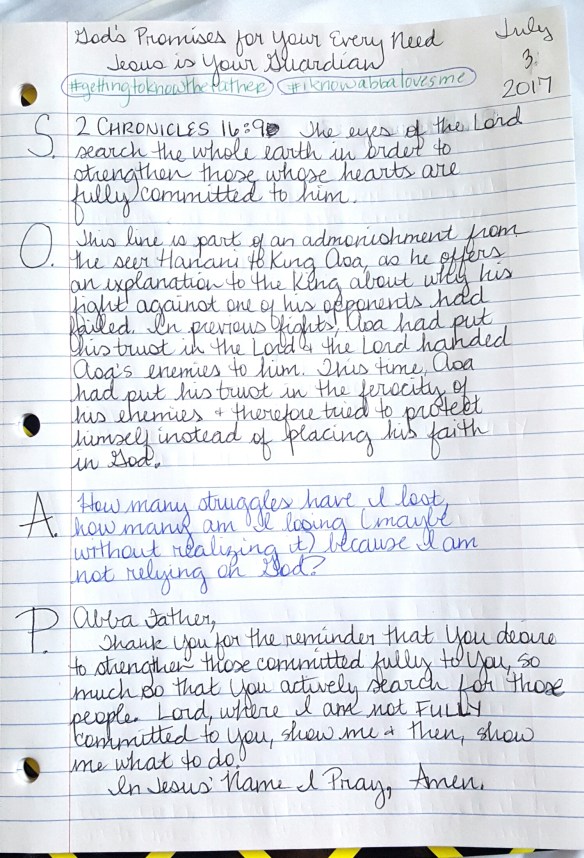 God's Promises for Your Every Need
Jesus is Your Guardian
July
3,
2017
#gettingtoknowthefather #iknowabbalovesme
S. 2 CHRONICLES 16:9 The eyes of the Lord
search the whole earth in order to
strengthen those whose hearts are
fully committed to him.
O. This line is part of an admonishment from
the seer Hanani to King Asa, as he offers
an explanation to the King about why his
fight against one of his opponents had
failed. In previous fights, Asa had put
his trust in the Lord & the Lord handed
Asa's enemies to him. This time, Asa
had put his trust in the ferocity of
his enemies & therefore tried to protect
himself instead of placing his faith
in God.
A. How many struggles have I lost,
how many am I losing (maybe
without realizing it) because I am
not relying on God?
P. Abba Father,
Thank You for the reminder that You desire
to strengthen those committed fully to You, so
much so that You actively search for those
people. Lord, where I am not FULLY
committed to You, show me & then, show
me what to do.
In Jesus' Name I Pray, Amen.